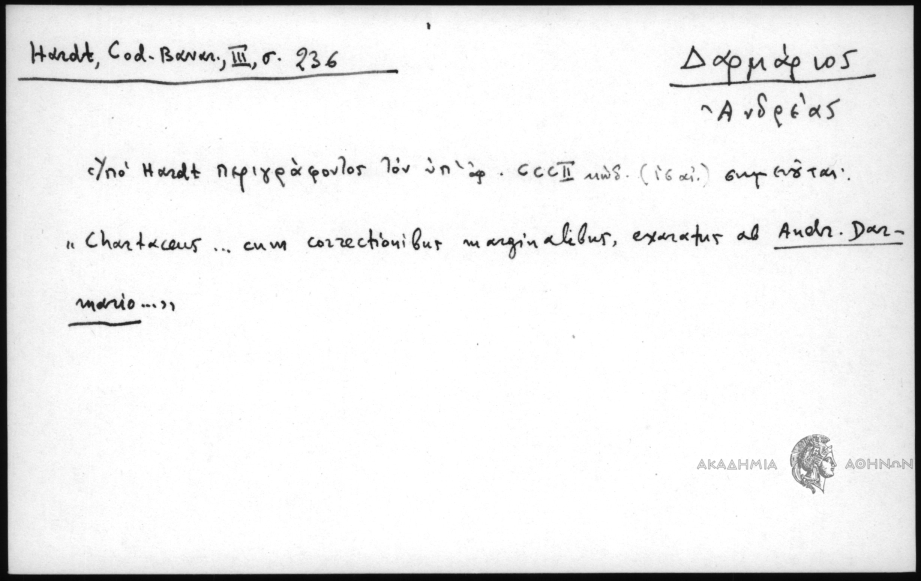 Hardt, Cod. Bavar., III, σ. 236
Δαρμάριος
Ἀνδρέας
Ὑπό Hardt περιγράφοντος τόν ὑπ' ἀρ. CCCII κώδ. σημειοῦται:
"Chartaceus ... cum correctionibus marginalibus, exaratus ab Andr. Dar-
mario ...»
ΑΚΑΔΗΜΙΑ ΑΘΗΝΩΝ